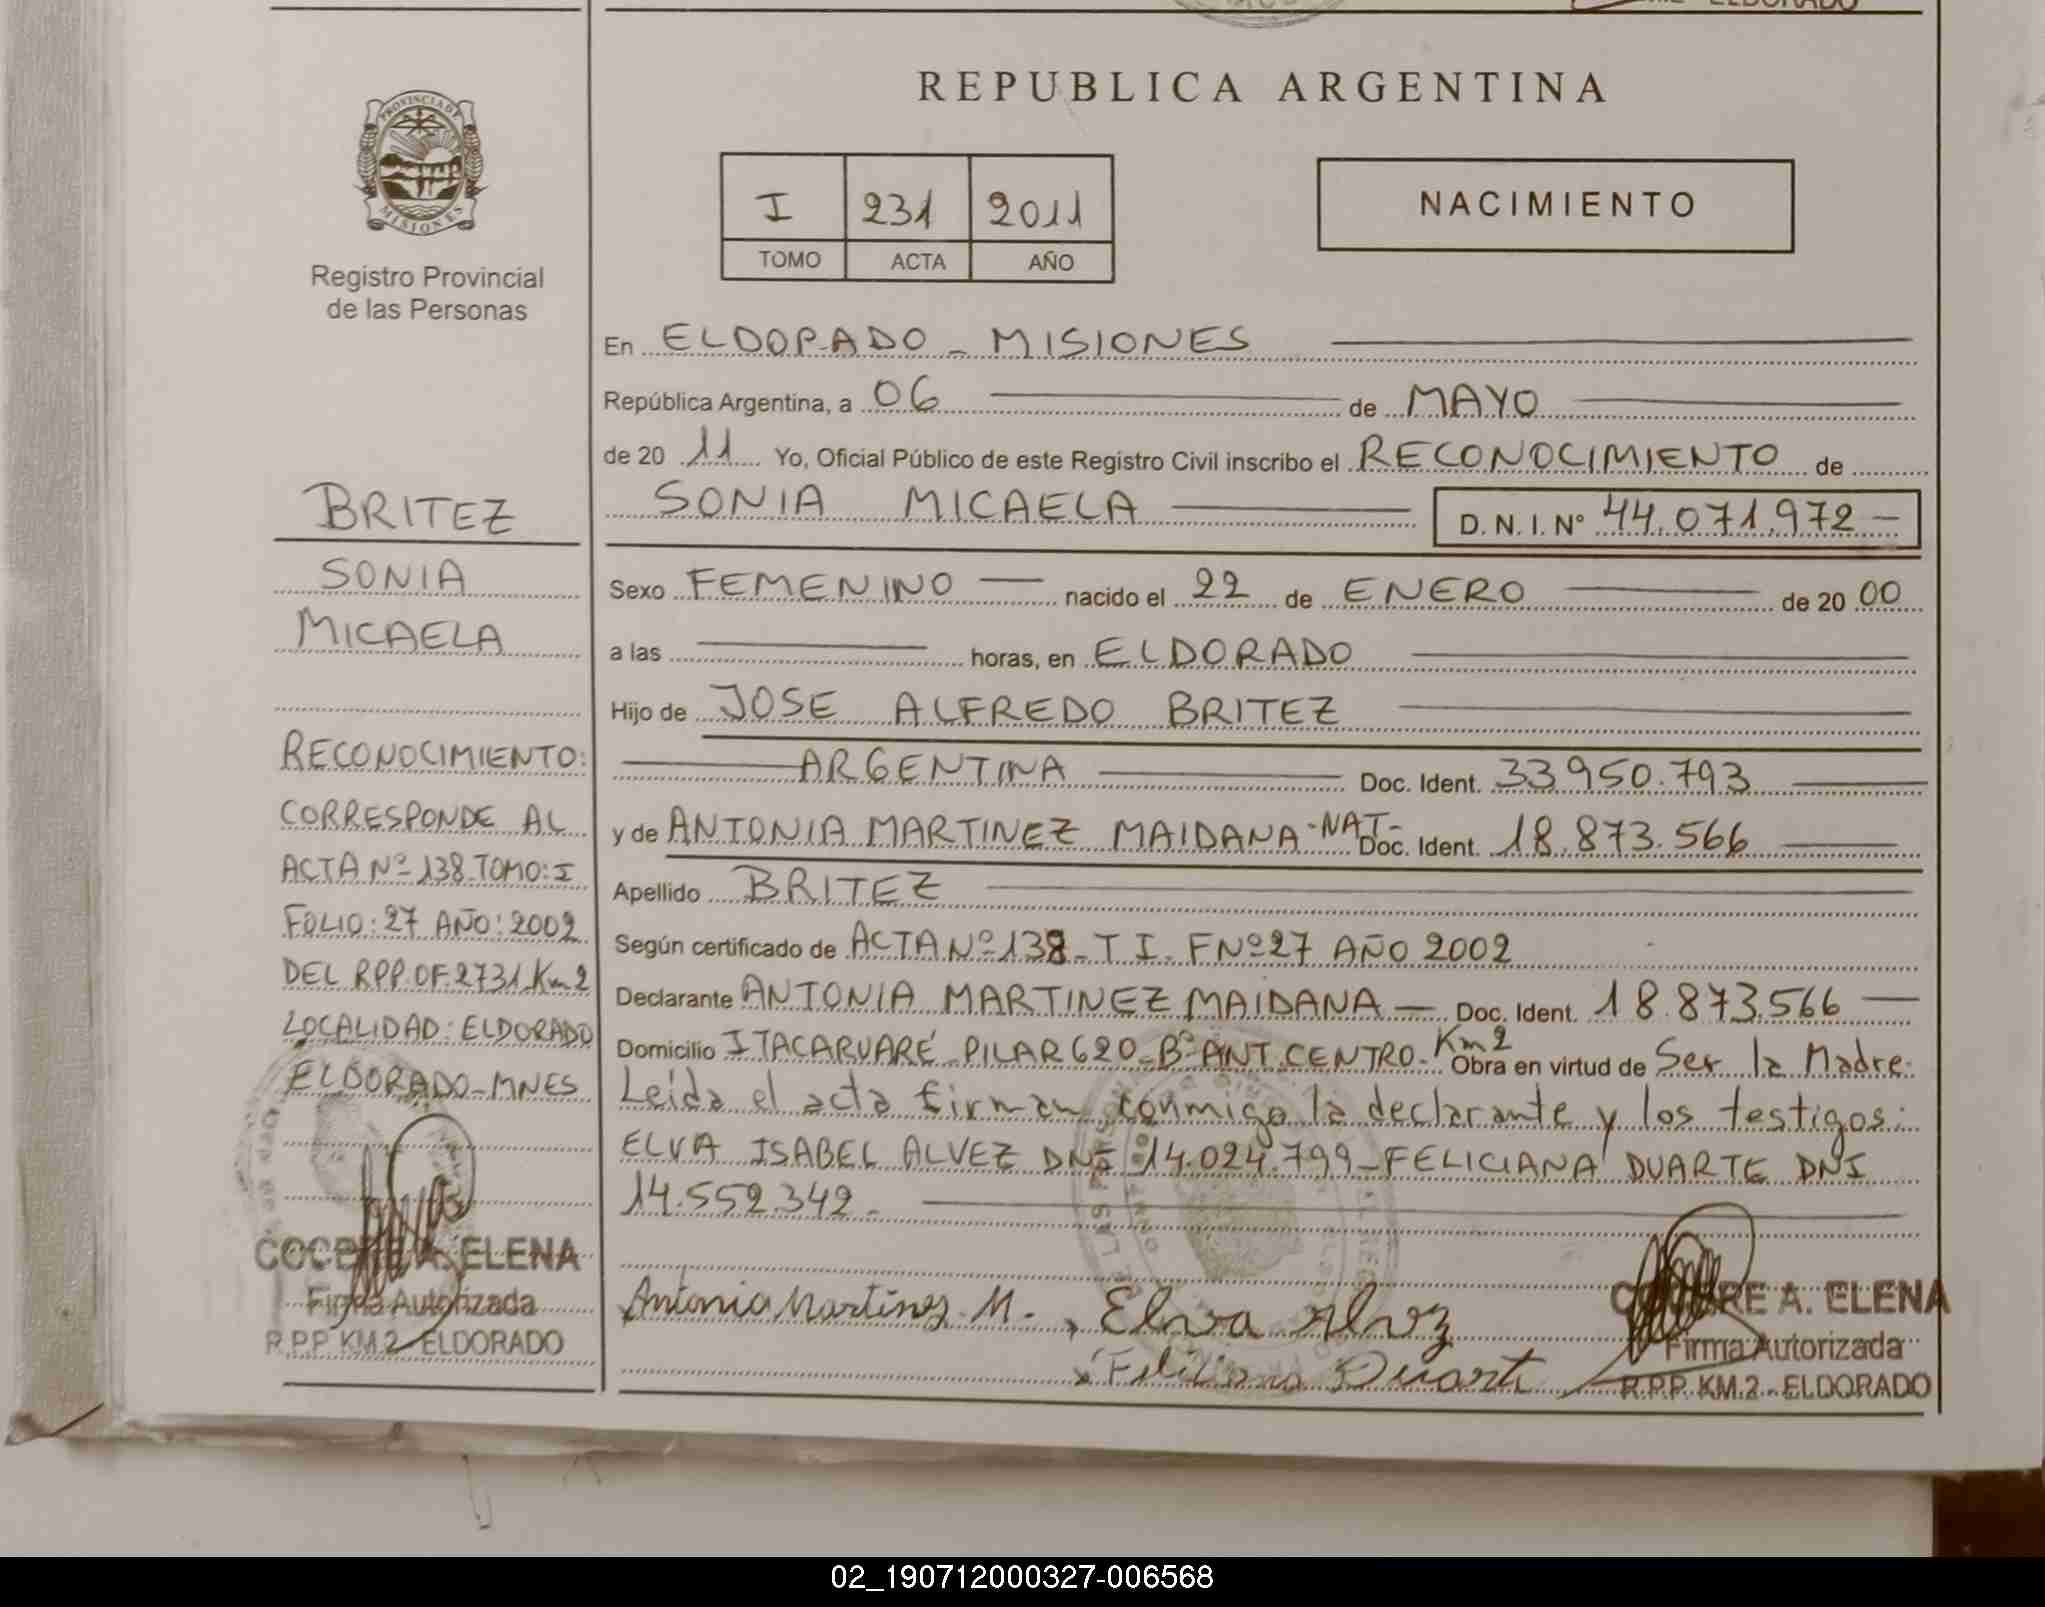 REPUBLICA ARGENTINA
PROVINCIA DE
MISIONES
Registro Provincial
de las Personas
I 231 2011
TOMO ACTA AÑO
NACIMIENTO
En ELDORADO - MISIONES
República Argentina, a 06 de MAYO
de 20 11 Yo, Oficial Público de este Registro Civil inscribo el RECONOCIMIENTO de
SONIA MICAELA D. N. I. Nº 44.071.972 -
Sexo FEMENINO nacido el 22 de ENERO de 20 00
a las horas, en ELDORADO
Hijo de JOSE ALFREDO BRITEZ
ARGENTINA Doc. Ident. 33.950.793
y de ANTONIA MARTINEZ MAIDANA -NAT- Doc. Ident. 18.873.566
Apellido BRITEZ
Según certificado de ACTA Nº 138 - T I. F Nº 27 AÑO 2002
Declarante ANTONIA MARTINEZ MAIDANA - Doc. Ident. 18.873.566
Domicilio ITACARUARÉ - PILAR 620 - Bº ANT. CENTRO - Km 2 Obra en virtud de Ser la Madre.
Leída el acta firman conmigo la declarante y los testigos:
ELVA ISABEL ALVEZ DNI 14.024.799 - FELICIANA DUARTE DNI
14.552.342.
Antonia Martinez M. Elva Alvez
Feliciana Duarte
COCERE A. ELENA
Firma Autorizada
R.P.P. KM.2 - ELDORADO
BRITEZ
SONIA
MICAELA
RECONOCIMIENTO:
CORRESPONDE AL
ACTA Nº 138 TOMO: I
FOLIO: 27 AÑO: 2002
DEL RPP. OF. 2731 Km 2
LOCALIDAD: ELDORADO
ELDORADO - MNES
A. ELENA
Firma Autorizada
R.P.P. KM.2 ELDORADO
02_190712000327-006568